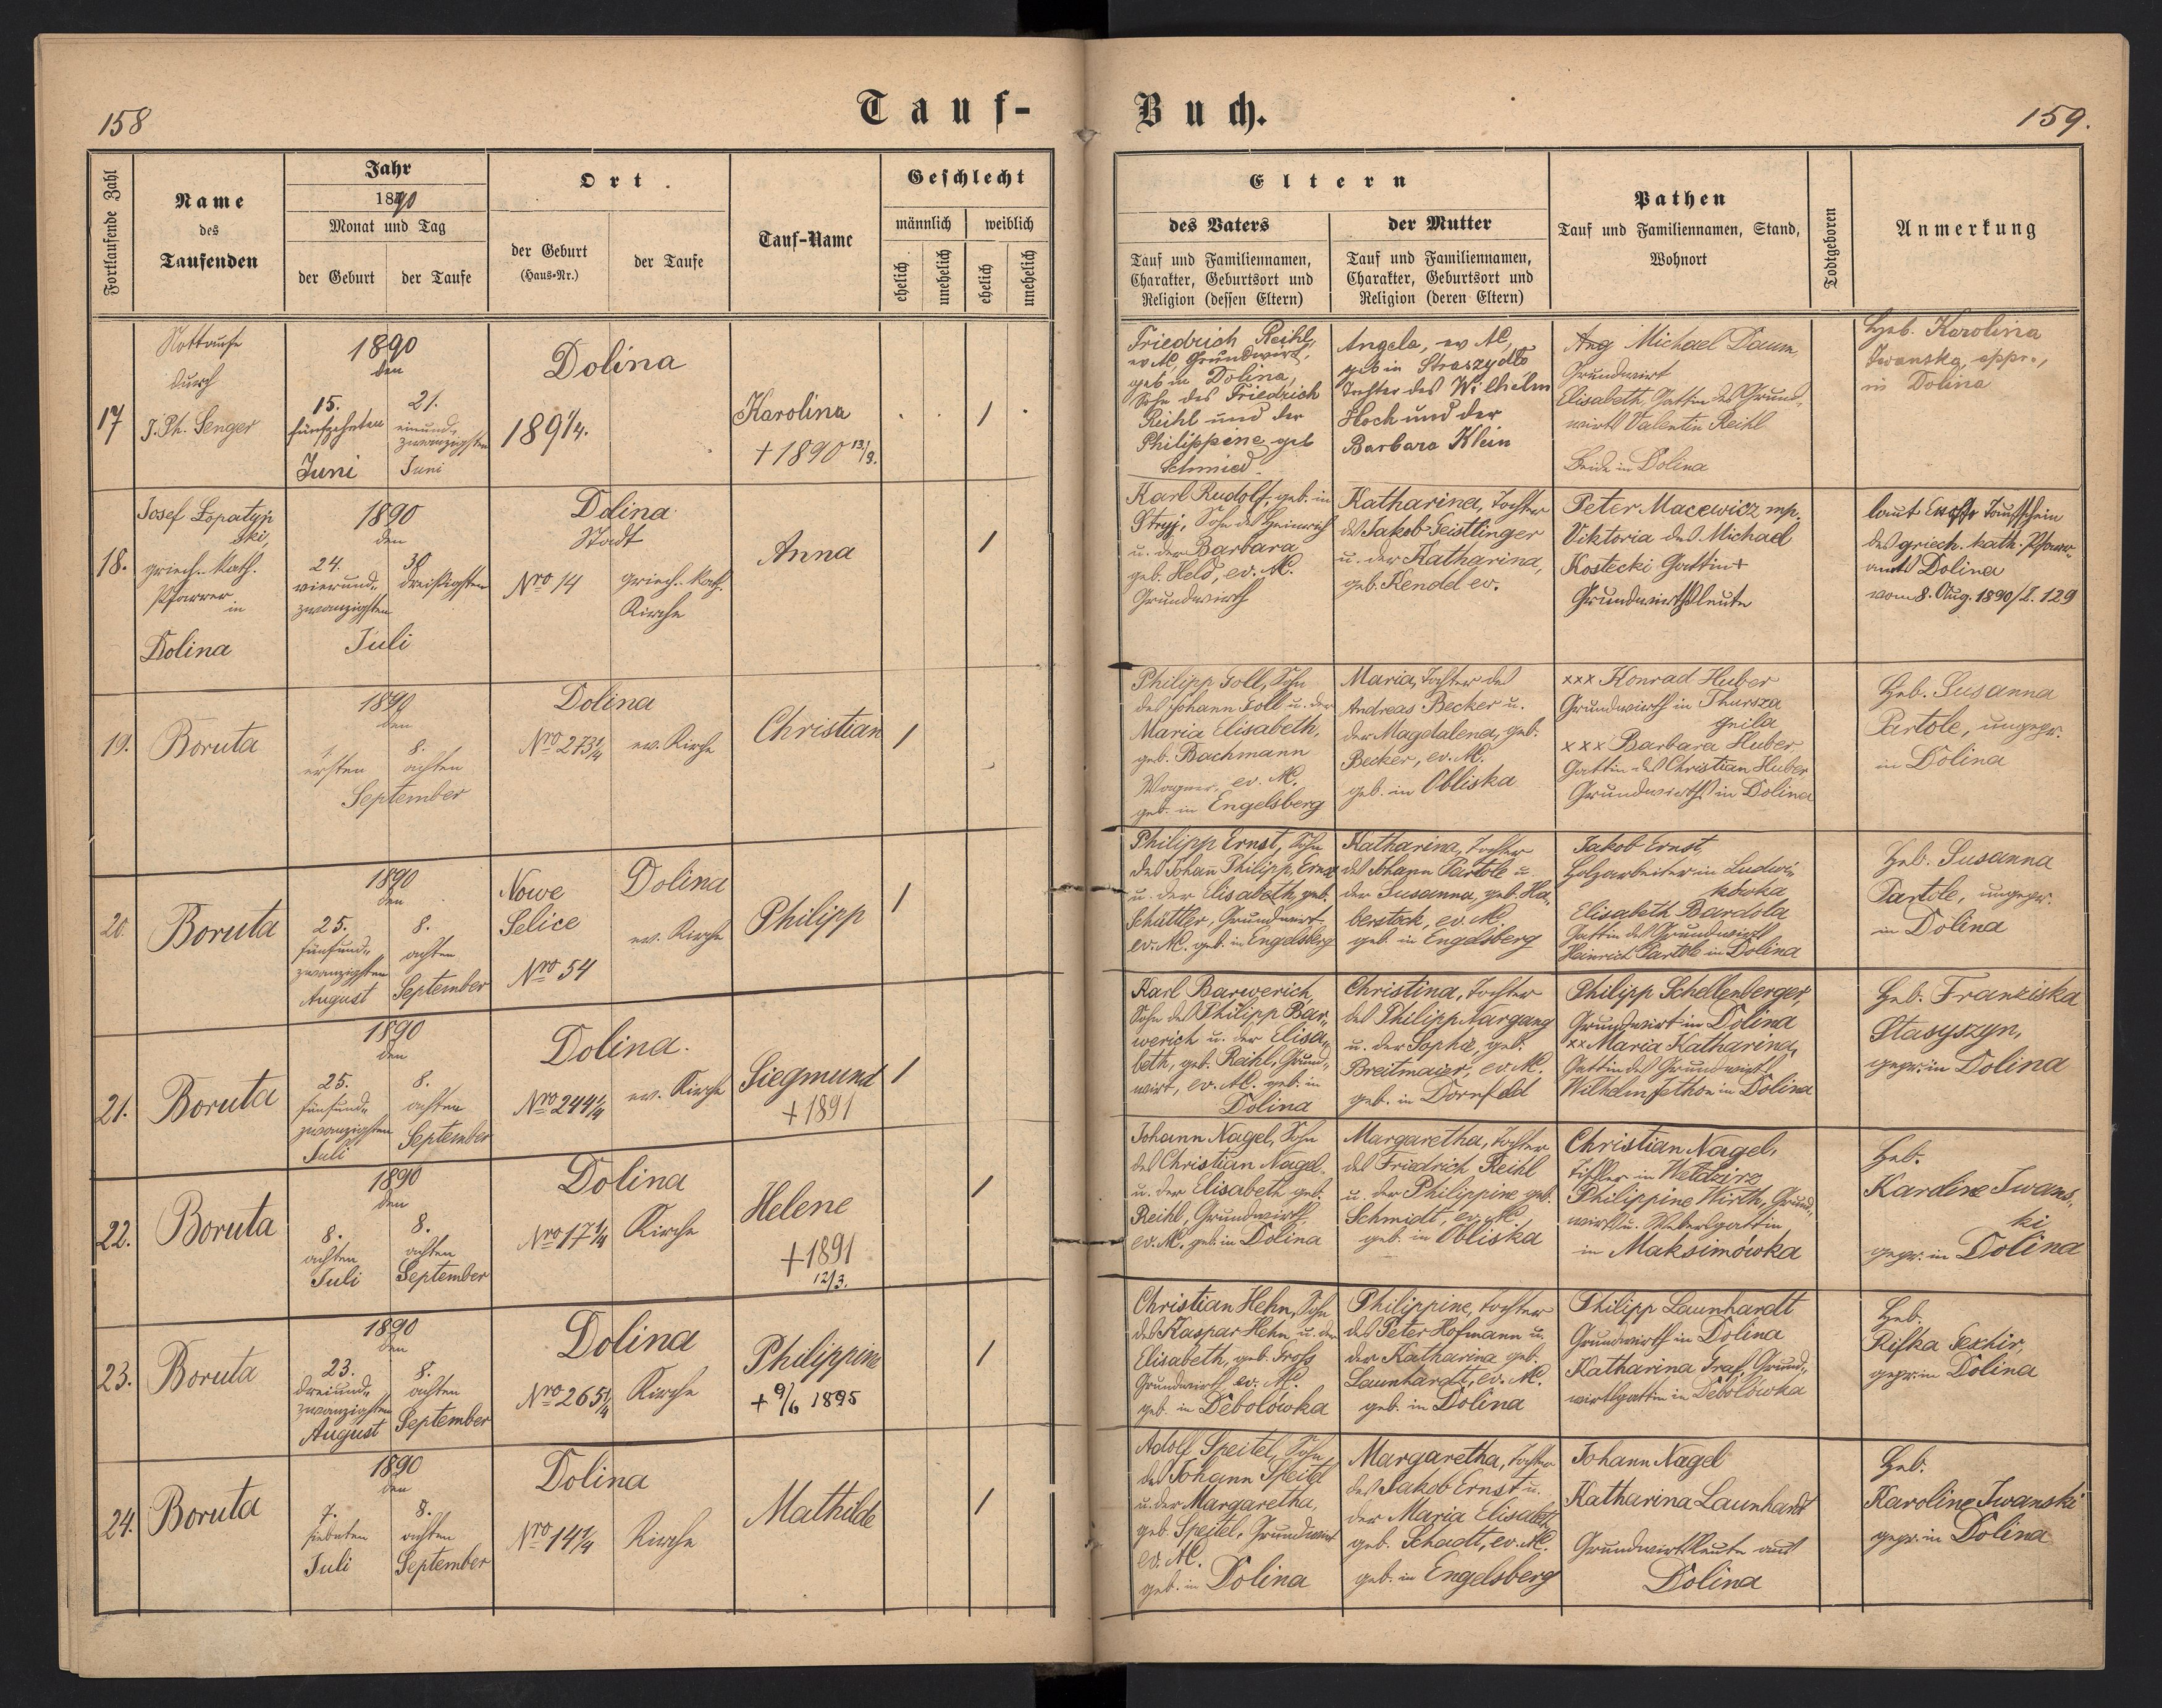 158
Tauf-
Fortlaufende Zahl
Name
des
Taufenden
Jahr
1890
Monat und Tag
der Geburt
der Taufe
Ort.
der Geburt
(Haus-Nr.)
der Taufe
Tauf-Name
Geschlecht
männlich
weiblich
ehelich
unehelich
ehelich
unehelich
17
Nottaufe
durch
J. Ph. Senger
1890
den
15.
fünfzehnten
Juni
21.
einund-
zwanzigsten
Juni
Dolina
189 1/4.
Karolina
+ 1890 12/9.
1
18.
Josef Lopatyn
ski,
griech. kath.
Pfarrer
in
Dolina
1890
den
24.
vierund-
zwanzigsten
30
dreißigsten
Juli
Dolina
Stadt
Nro 14
griech. kath.
Kirche
Anna
1
19.
Boruta
1890
den
1.
ersten
8.
achten
September
Dolina
Nro 273 1/4
ev. Kirche
Christian
1
20.
Boruta
1890
den
25.
fünfund-
zwanzigsten
August
8.
achten
September
Nowe
Selice
Nro 54
Dolina
ev. Kirche
Philipp
1
21.
Boruta
1890
den
25.
fünfund-
zwanzigsten
Juli
8.
achten
September
Dolina.
Nro 244 1/4
ev. Kirche
Siegmund
+ 1891
1
22.
Boruta
1890
den
8.
achten
Juli
8.
achten
September
Dolina
Nro 17 1/4
Kirche
Helene
+ 1891
12/3.
1
23.
Boruta
1890
den
23.
dreiund-
zwanzigsten
August
8.
achten
September
Dolina
Nro 265 1/4
Kirche
Philippine
+ 9/6 1895
1
24.
Boruta
1890
den
7.
siebenten
Juli
8.
achten
September
Dolina
Nro 14 1/4
Kirche
Mathilde
1
Buch.
159.
Eltern
des Vaters
Tauf und Familiennamen,
Charakter, Geburtsort und
Religion (dessen Eltern)
der Mutter
Tauf und Familiennamen,
Charakter, Geburtsort und
Religion (deren Eltern)
Pathen
Tauf und Familiennamen, Stand,
Wohnort
Todtgeboren
Anmerkung
Friedrich Reihl,
ev. AC, Grundwirt,
geb in Dolina,
Sohn des Friedrich
Reihl und der
Philippine geb
Schmied.
Angela, ev AC,
geb in Straszydlo
Tochter des Wilhelm
Hoch und der
Barbara Klein
Michael Daum,
Grundwirt
Elisabeth, Gattin des Grund-
wirts Valentin Reihl
Beide in Dolina
Heb. Karolina
Iwanska, appr.,
in Dolina
Karl Rudolf, geb. in
Stryj, Sohn des Heinrich
u. der Barbara
geb. Held, ev. AC.
Grundwirth
Katharina, Tochter
des Jakob Geistlinger
u. der Katharina,
geb. Kendel ev.
Peter Macewicz mp.
Viktoria des Michael
Kostecki Gattin +
Grundwirthsleute
laut Taufschein
des griech. kath. Pfarr-
amts Dolina
vom 8. Aug. 1890/Z. 129
Philipp Joll, Sohn
des Johann Joll u. der
Maria Elisabeth,
geb. Bachmann
Wagner, ev. AC.
geb. in Engelsberg
Maria, Tochter des
Andreas Becker u.
der Magdalena, geb.
Becker, ev. AC.
geb. in Obliska
xxx Konrad Huber
Grundwirth in Thursza
gnila
xxx Barbara Huber,
Gattin des Christian Huber
Grundwirths in Dolina
Heb. Susanna
Partole, ungepr.
in Dolina
Philipp Ernst, Sohn
des Johann Philipp Ernst
u. der Elisabeth, geb.
Schättler, Grundwirt
ev. AC. geb. in Engelsberg
Katharina, Tochter
des Johann Partole u.
der Susanna, geb. Ha-
berstock, ev. AC
geb. in Engelsberg
Jakob Ernst,
Holzarbeiter in Ludwi-
kowka
Elisabeth Bardola
Gattin des Grundwirts
Heinrich Partole in Dolina
Heb. Susanna
Partole, ungepr.
in Dolina
Karl Barwerich,
Sohn des Philipp Bar-
werich u. der Elisa-
beth, geb. Reihl, Grund-
wirt, ev. AC. geb. in
Dolina
Christina, Tochter
des Philipp Aargang
u. der Sophie, geb.
Breitmaier, ev AC.
geb. in Dornfeld
Philipp Schellenberger,
Grundwirt in Dolina
xx Maria Katharina,
Gattin des Grundwirts
Wilhelm Jethon in Dolina
Heb. Franziska
Stasyszyn,
gepr. in Dolina
Johann Nagel, Sohn
des Christian Nagel
u. der Elisabeth geb.
Reihl, Grundwirth,
ev. AC. geb. in Dolina
Margaretha, Tochter
des Friedrich Reihl
u. der Philippine geb.
Schmidt, ev. AC
geb. in Obliska
Christian Nagel,
Tischler in Weldzirz
Philippine Wirth, Grund-
wirts u. Webersgattin
in Maksimówka
Heb.
Karoline Iwans-
ki
gepr. in Dolina
Christian Hehn, Sohn
des Kaspar Hehn u. der
Elisabeth, geb. Groß
Grundwirth ev. AC.
geb. in Debolówka
Philippine, Tochter
des Peter Hofmann u.
der Katharina geb.
Launhardt, ev. AC.
geb. in Dolina
Philipp Launhardt
Grundwirth in Dolina
Katharina Graf, Grund-
wirtsgattin in Debolówka
Heb.
Rifka
gepr. in Dolina
Adolf Speitel, Sohn
des Johann Speitel
u. der Margaretha,
geb. Speitel, Grundwirt
ev. AC.
geb. in Dolina
Margaretha, Tochter
des Jakob Ernst u.
der Maria Elisabeth
geb. Schadt, ev. AC.
geb. in Engelsberg
Johann Nagel
Katharina Launhardt
Grundwirthsleute aus
Dolina
Heb.
Karoline Iwanski
gepr. in Dolina